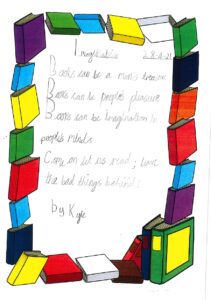 Imagination 28-4-21
Books can be a man's treasure
Books can be people's pleasure
Books can be imagination in
people's minds
Come on let us read, leave
the bad things behind!
by Kyle